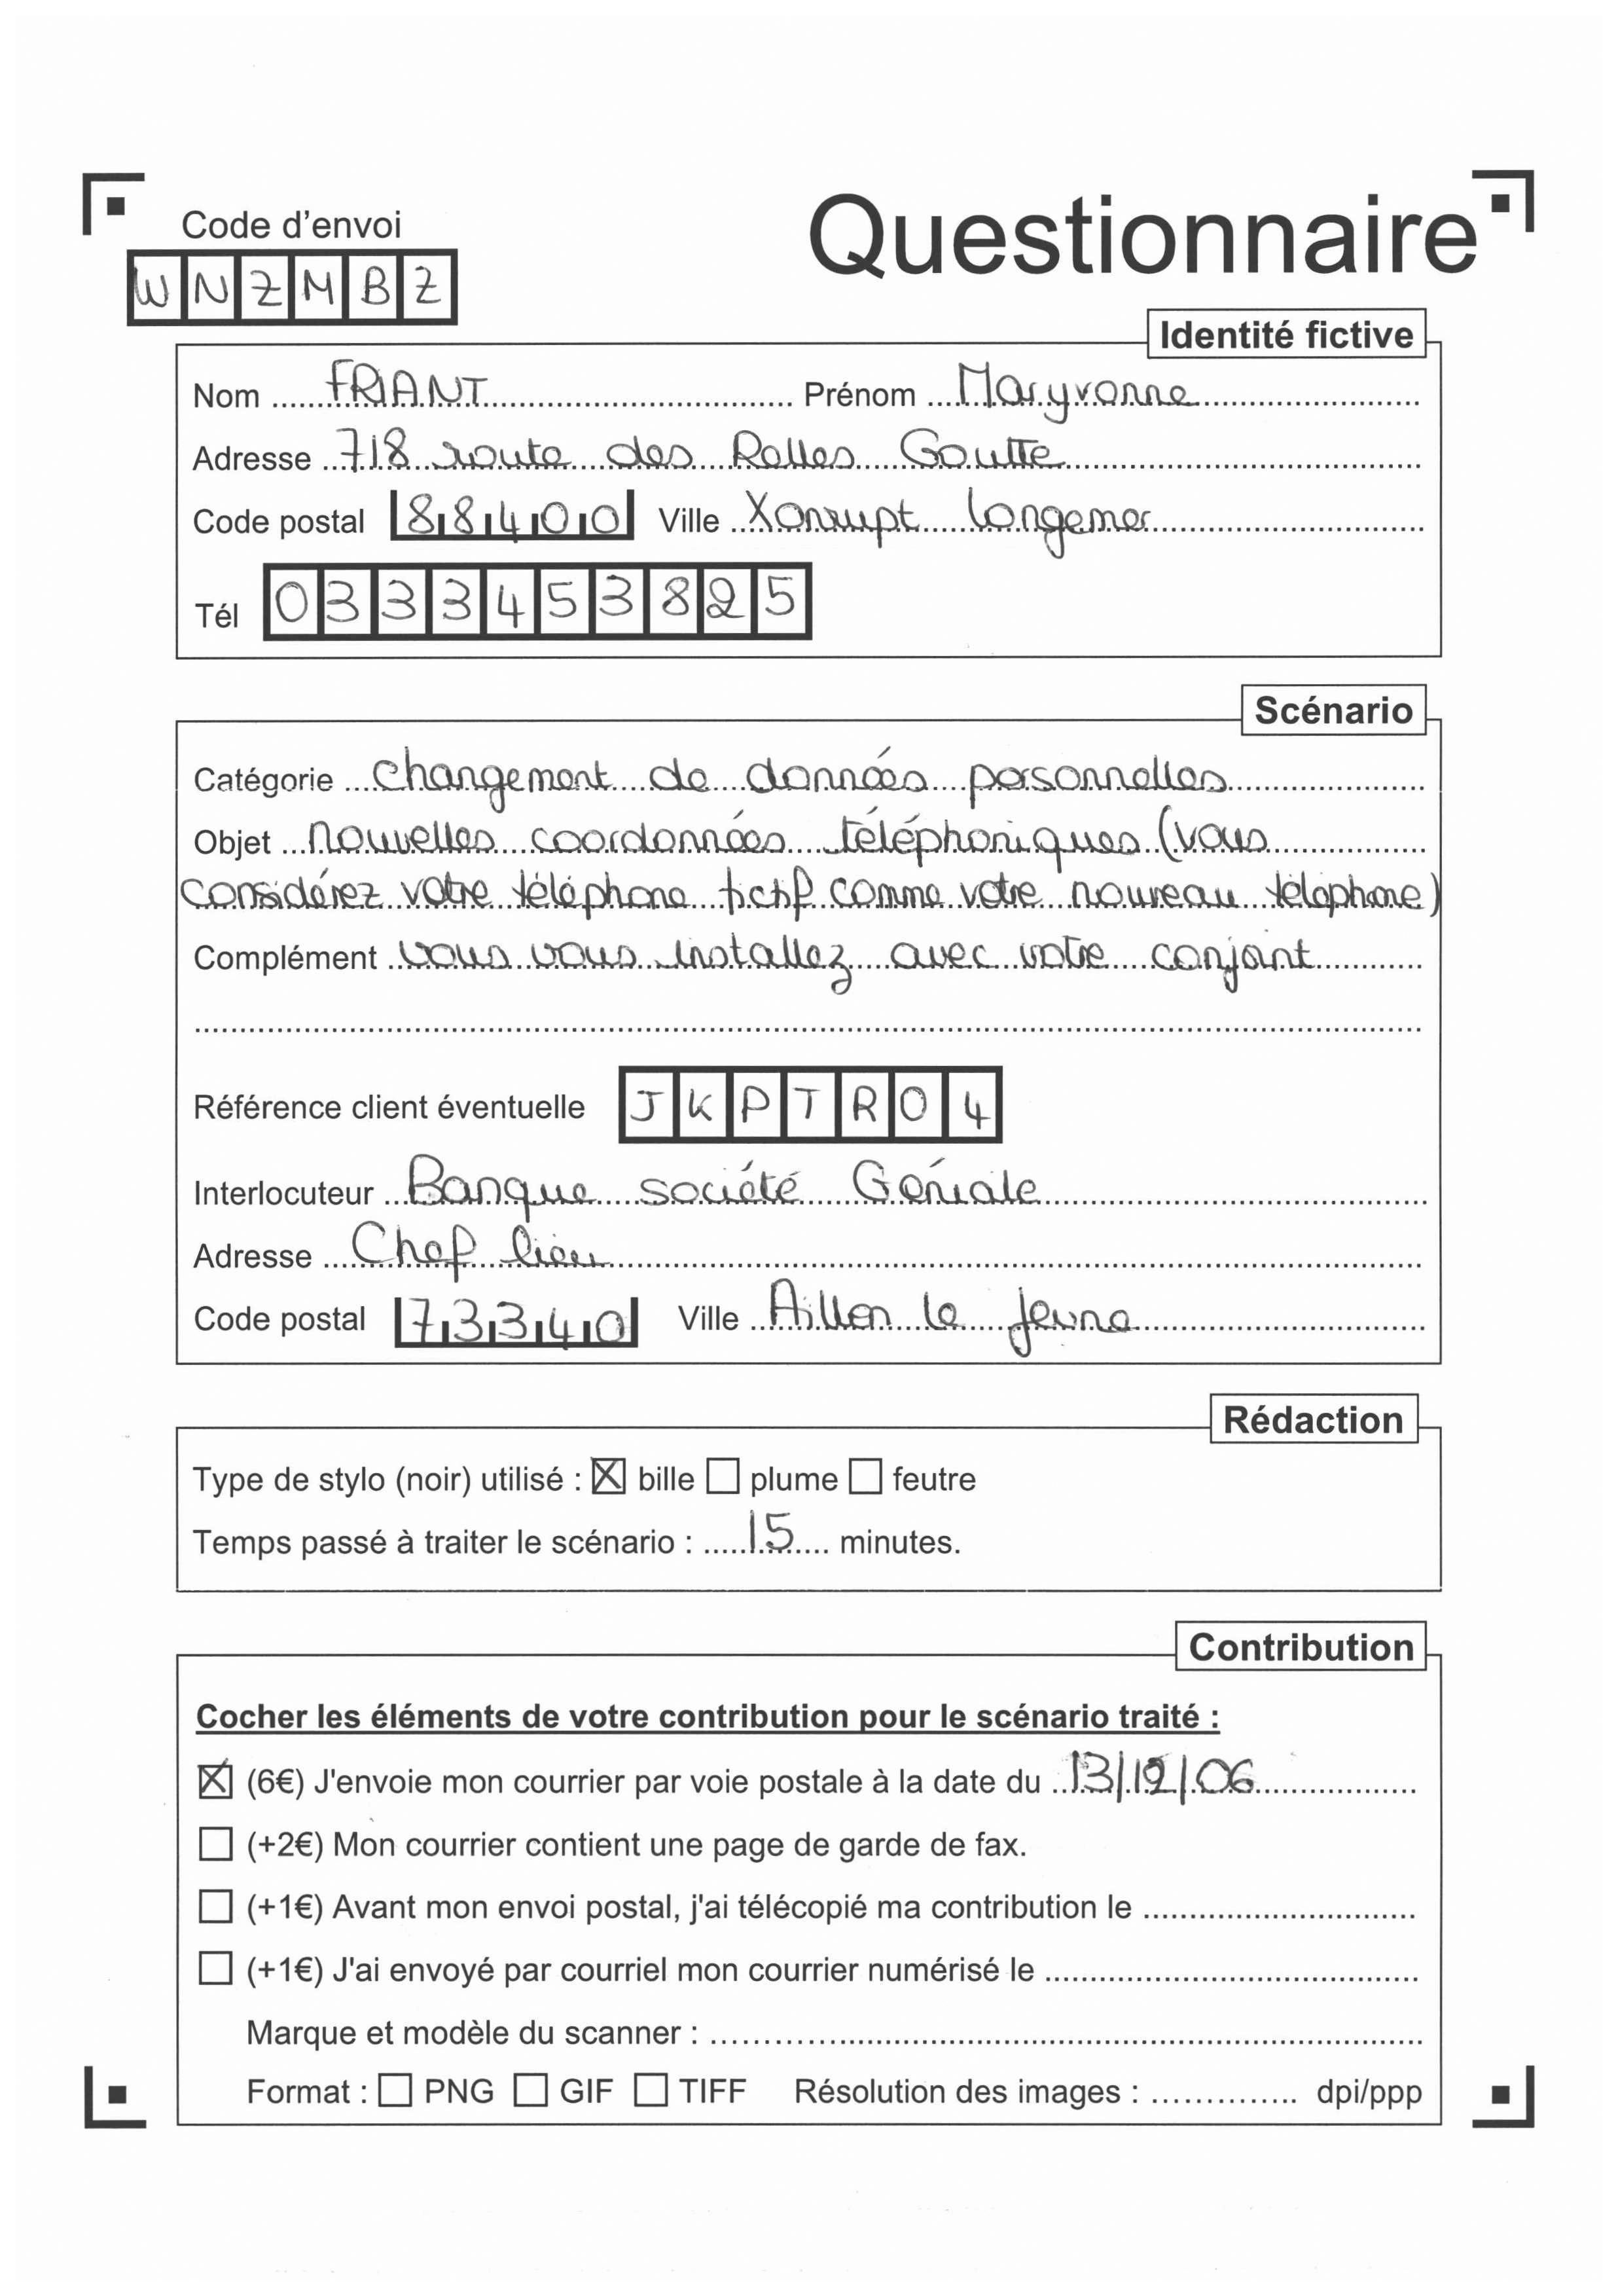 Questionnaire
Code d'envoi
WNZMBZ
Identité fictive
Nom FRIANT Prénom Maryvonne
Adresse 718 route des Relles Goutte
Code postal 88400 Ville Xonrupt Longemer
Tél 0333453825
Scénario
Catégorie changement de données personnelles
Objet nouvelles coordonnées téléphoniques (vous
considérez votre téléphone fictif comme votre nouveau téléphone)
Complément vous vous installez avec votre conjoint
Référence client éventuelle JKPTR04
Interlocuteur Banque société Géniale
Adresse Chef lieu
Code postal 73340 Ville Aillon le Jeune
Rédaction
Type de stylo (noir) utilisé : ☒ bille ☐ plume ☐ feutre
Temps passé à traiter le scénario : 15 minutes.
Contribution
Cocher les éléments de votre contribution pour le scénario traité :
☒ (6€) J'envoie mon courrier par voie postale à la date du 13/12/06
☐ (+2€) Mon courrier contient une page de garde de fax.
☐ (+1€) Avant mon envoi postal, j'ai télécopié ma contribution le
☐ (+1€) J'ai envoyé par courriel mon courrier numérisé le
Marque et modèle du scanner :
Format : ☐ PNG ☐ GIF ☐ TIFF Résolution des images : dpi/ppp